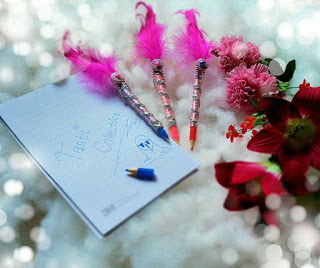 Tanbi
Collection